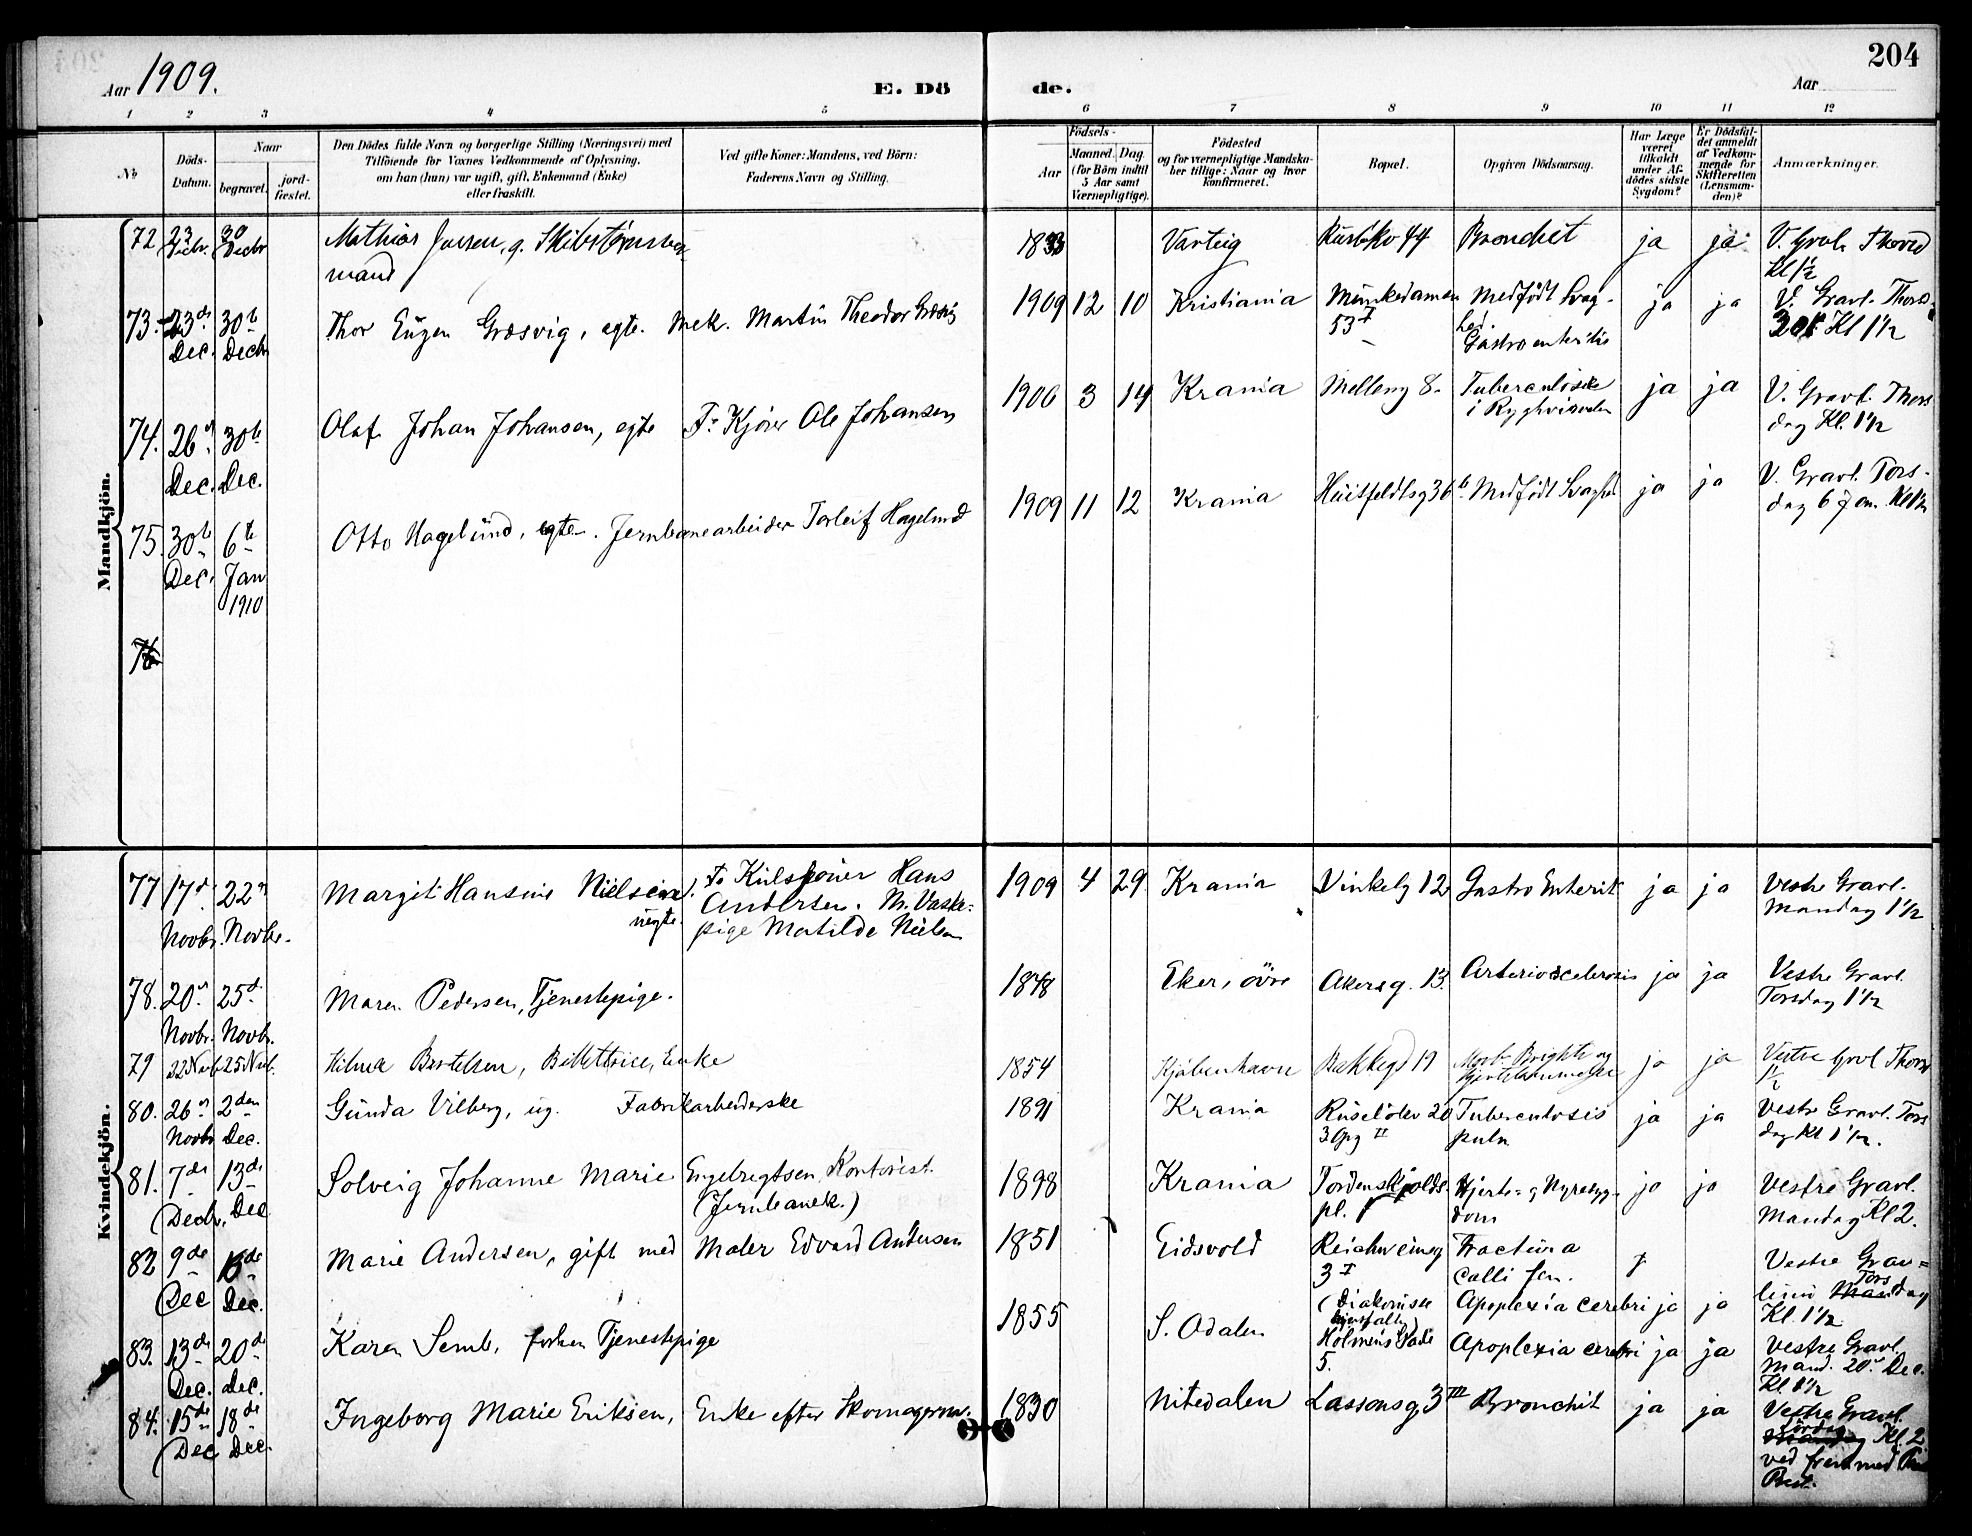 204
Aar 1909.
E. Dö
de.
Aar
1 2 3 4 5 6 7 8 9 10 11 12
No
Döds-Datum.
Naar
begravet.
jord-fæstet.
Den Dödes fulde Navn og borgerlige Stilling (Næringsvei) med
Tilföiende for Voxnes Vedkommende af Oplysning,
om han (hun) var ugift, gift, Enkemand (Enke)
eller fraskilt.
Ved gifte Koner: Mandens, ved Börn:
Faderens Navn og Stilling.
Födsels-
Aar
Maaned. Dag.
(for Börn indtil
5 Aar samt
Værnepligtige).
Födested
og for værnepligtige Mandska-
ber tillige: Naar og hvor
konfirmeret.
Bopæl.
Opgiven Dödsaarsag.
Har Læge
været
tilkaldt
under Af-
dödes sidste
Sygdom?
Er Dödsfal-
det anmeldt
af Vedkom-
mende for
Skifteretten
(Lensman-
den)?
Anmærkninger.
Mandkjön.
72 23 Decbr. 30 Decbr Mathias Jansen, g. 1833 Varteig 44 Bronchit ja ja V. Gravl.
mand Kl 1½
73 23de Dec. 30te Decbr Thor Eugen Græsvig, egte. Mek. Martin Theodor Græsvig 1909 12 10 Kristiania Munkedamsv 53 I Medfödt Svag-hed. Gastroenteritis ja ja V. Gravl. Thorsd. 30te Kl 1½
74. 26 Dec. 30te Dec. Olaf Johan Johansen, egte F: Kjörer Ole Johansen 1906 3 14 Krania Mellemg 8. Tuberculose i Ryghvirvelen ja ja V. Gravl. Thors
dag Kl. 1½
75. 30te Dec. 6te Jan 1910 Otto Hagelund, egte. Jernbanearbeider Torleif Hagelund 1909 11 12 Krania Huitfeldtsg 36 b. Medfödt Svaghed ja ja V. Gravl. Tors-
dag 6 Jan. Kl 1½
76
Kvindekjön.
77 17de Novbr. 22 Novbr. Margit Hansine Nielsen uegte. Fa Kulskjörer Hans
Andersen. M. Vaske-
pige Matilde Nielsen 1909 4 29 Krania Vinkelg 12 Gastro Enterit ja ja Vestre Gravl.
Mandag 1½
78. 20 Novbr. 25de Novbr. Maren Pedersen, Tjenestepige. 1848 Eker, övre Akersg. 13. Arterioscelerosis ja ja Vestre Gravl.
Torsdag 1½
79 22 Novb 25 Novb. Hilma Bertelsen, Billettrice, Enke 1854 Kjöbenhavn Bakkegd 19 Morb. Brightii og ja ja Vestre Gravl Thorsd
½
80. 26 Novbr 2den Dec. Gunda Vilberg, ug. Fabrikarbeiderske 1891 Krania Ruselökv 20
3 Opg II Tuberculosis
pulm ja ja Vestre Gravl. Tors
dag Kl 1½.
81. 7de Decbr. 13de Dec Solveig Johanne Marie Engebregtsen, Kontorist
(Jernbanek.) 1898 Krania Tordenskjolds.
pl. Hjerte- og Nyresyg-
dom ja ja Vestre Gravl.
Mandag Kl 2.
82 9de Dec Dec. Marie Andersen, gift med Maler Edvard Andersen 1851 Eidsvold Reichweinsg
3 I Fractura
colli fem. Vestre Grav-
lund Torsdag
Kl. 1½
(Diakonisse Apoplexia cerebri ja ja
83. 13de Dec. 20de Dec. Karen Semb, forhen Tjenestepige 1855 S. Odalen Holmens Gade
5. Apoplexia cerebri ja ja Vestre Gravl.
Mand. 20 Dec.
Kl 1½
84. 15de Dec 18de Dec. Ingeborg Marie Eriksen, Enke efter Skomagerm. 1830 Nitedalen Lassonsg 3 III Bronchit ja ja Vestre Gravl.
Lördag Kl. 2
ved fremmed